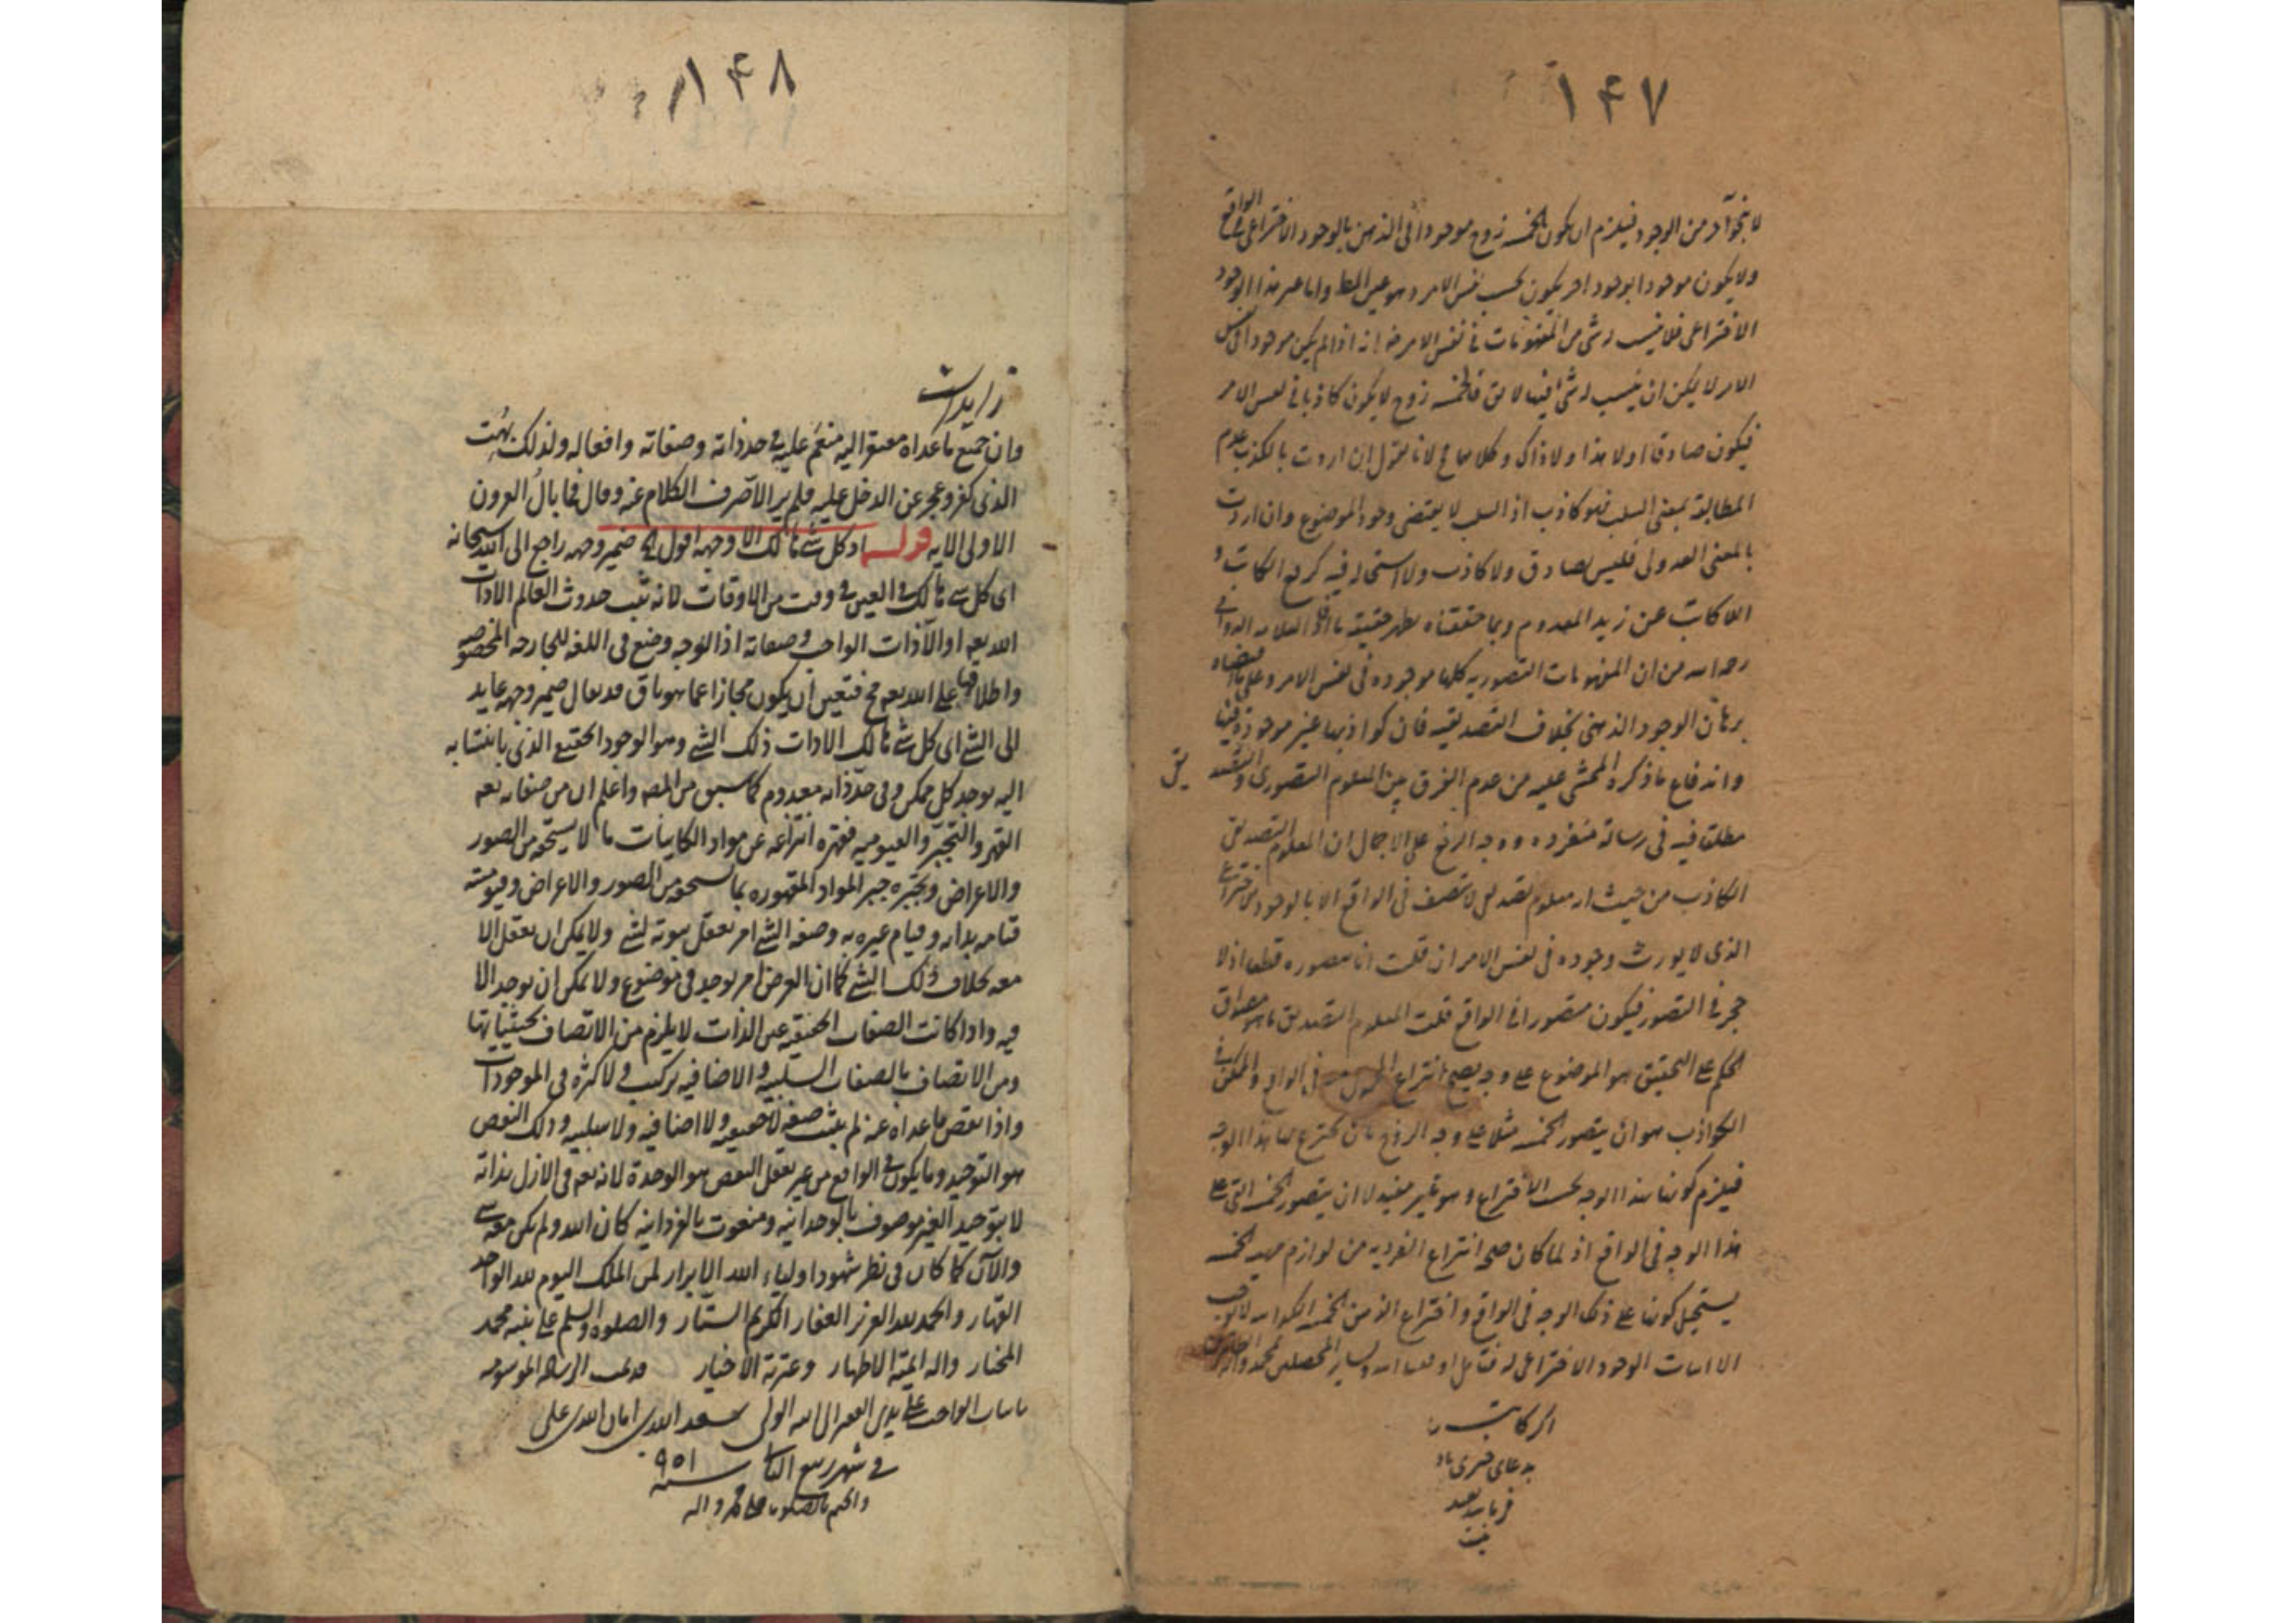 ۱۴۷
لا بنحو آخر من الوجود فيلزم ان يكون الخمسة زوج موجودا في الذهن بالوجود الاختراعي الواقع
ولا يكون موجودا بوجود اخر يكون بحسب نفس الامر وهو عين المط واما غير هذا الوجود
الاختراعي فلا ينسب لشئ من المفهومات في نفس الامر اذا لم يكن موجودا في نفس
الامر لا يمكن ان ينسب لشئ فيها لا يق فالخمسة زوج لا يكون كاذبا في نفس الامر
فيكون صادقا اولا هذا ولا ذاك وكلاهما مح لانا نقول ان اردت بالكذب عدم
المطابقة بمعنى السلب فهو كاذب اذ السلب لا يقتضى وجود الموضوع وان اردت
بالمعنى العدولى فليس بصادق ولا كاذب ولا استحالة فيه كرفع الكاتب و
اللاكاتب عن زيد المعدوم وبما حققناه يظهر حقيقة ما العلامه الدوانى
رحه الله من ان المفهومات التصورية كلها موجوده فى نفس الامر وعلى
برهان الوجود الذهنى بخلاف التصديقية فان كواذبها غير موجودة فيها
واندفاع ما ذكره المحشى عليه من عدم الفرق بين المعلوم التصورى والتصد
يق
فيه فى رسالة منفرده ووجه الدفع على الاجمال ان المعلوم التصديقى
الكاذب من حيث انه معلوم تصديقى لا يتصف فى الواقع الا بالوجود الاختراع
الذى لا يورث وجوده فى نفس الامر ان قلت انا نتصوره قطعا اذ لا
حجر فى التصور فيكون متصورا فى الواقع قلت المعلوم التصديقى ما هو مصداق
الحكم على التحقيق هو الموضوع على وجه يصح انتزاع المحمول فى الواقع والممكن فى
الكواذب هو ان يتصور الخمسة مثلا على وجه الزوج بان يخترع لها هذا الوجه
فيلزم كونها بهذا الوجه بحسب الاختراع وهو غير مفيد لا ان يتصور الخمسة التى على
هذا الوجه فى الواقع اذ لما كان صحة انتزاع الفردية من لوازم مهية الخمسة
يستحيل كونها على ذلك الوجه فى الواقع واختراع الذهن الخمسة
الا اثبات الوجود الاختراعى له فتامل
اكر كاتب را
بدعاى
۱۴۸
وان جميع ما عداه مفتقر اليه منعم عليه فى حد ذاته وصفاته وافعاله ولذلك بهت
الذى كفر وعجز عن الدخل عليه فلم ير الا صرف الكلام عنه وقال فما بال القرون
الاولى الايه قوله اذ كل شئ هالك الا وجهه اقول فى ضمير وجهه راجع الى الله سبحانه
اى كل شئ هالك فى العين فى وقت من الاوقات لانه ثبت حدوث العالم الا ذات
الله تعه او الا ذات الواجب وصفاته اذ الوجه وضع فى اللغة للجارحه المخصوصه
واطلاقها على الله تعه مح فتعين ان يكون مجازا عما هو باق قد يقال ضمير وجهه عايد
الى الشئ اى كل شئ هالك الا ذات ذلك الشئ وهو الوجود الحقيقى الذى بانتسابه
اليه يوجد كل ممكن وفى حد ذاته معدوم كما سبق من المص واعلم ان من صفاته تعه
القهر والتجبر والقيوميه فقهره انتزاعه عن مواد الكاينات ما لا يستحقه من الصور
والاعراض وتجبره جبر المواد المقهوره بما يستحقه من الصور والاعراض وقيوميته
قيامه بذاته وقيام غيره به وصفة الشئ امر يعقل ثبوته لشئ ولا يمكن ان يعقل الا
معه بخلاف ذلك الشئ كما ان العرض امر يوجد فى موضوع ولا يمكن ان يوجد الا
فيه واذا كانت الصفات الحقيقيه عين الذات لا يلزم من الاتصاف بحيثياتها
ومن الاتصاف بالصفات السلبيه والاضافيه تركب ولا كثرة فى الموجودات
واذا نقص ما عداه عنه لم يثبت صفة لا حقيقيه ولا اضافيه ولا سلبيه وذلك النقص
هو التوحيد وما يكون فى الواقع من غير تعقل النقص هو الوحدة لانه تعه فى الازل بذاته
لا بتوحيد الغير موصوف بالوحدانيه ومنعوت بالفردانيه كان الله ولم يكن معه شئ
والآن كما كان فى نظر شهود اولياء الله الابرار لمن الملك اليوم لله الواحد
القهار والحمد لله العزيز الغفار الكريم الستار والصلوة والسلم على نبيه محمد
المختار واله ايمة الاطهار وعترته الاخيار قد تمت الرسالة الموسومه
باثبات الواجب على يدى الفقير الى الله الولى سعد الله بن امان الله بن على
فى شهر ربيع الثانى سنه ۹۵۱